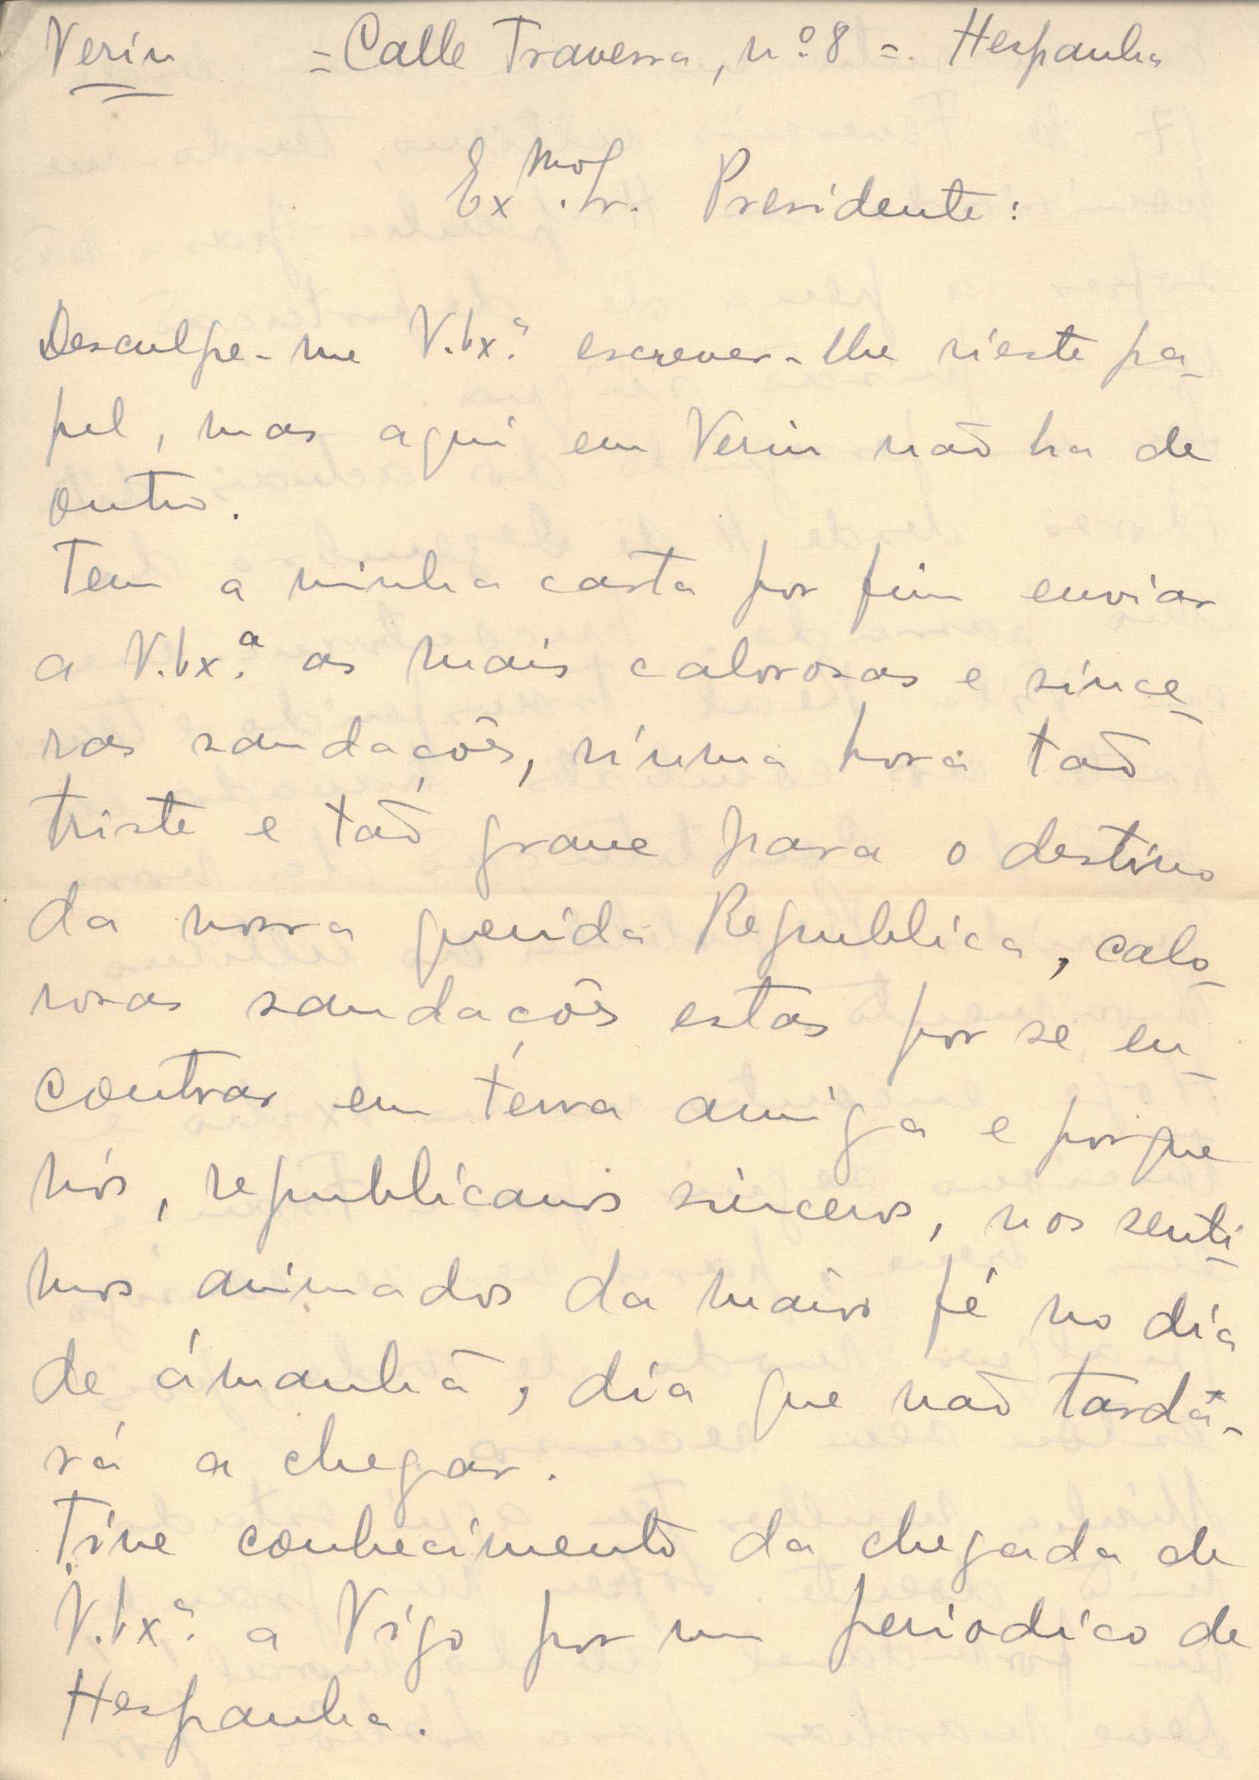 Verin = Calle Traversa, nº 8 =. Hespanha
Exmo. Sr. Presidente:
Desculpe-me V. Exª. escrever-lhe n'este pa-
pel, mas aqui em Verin não ha de
outro.
Tem a minha carta por fim enviar
a V. Exª. as mais calorosas e since-
ras saudações, n'uma hora tão
triste e tão grave para o destino
da nossa querida Republica, calo-
rosas saudações estas por se en-
contrar em terra amiga e porque
nós, republicanos sinceros, nos senti-
mos animados da maior fé no dia
de ámanhã, dia que não tarda-
rá a chegar.
Tive conhecimento da chegada de
V. Exª. a Vigo por um periodico de
Hespanha.